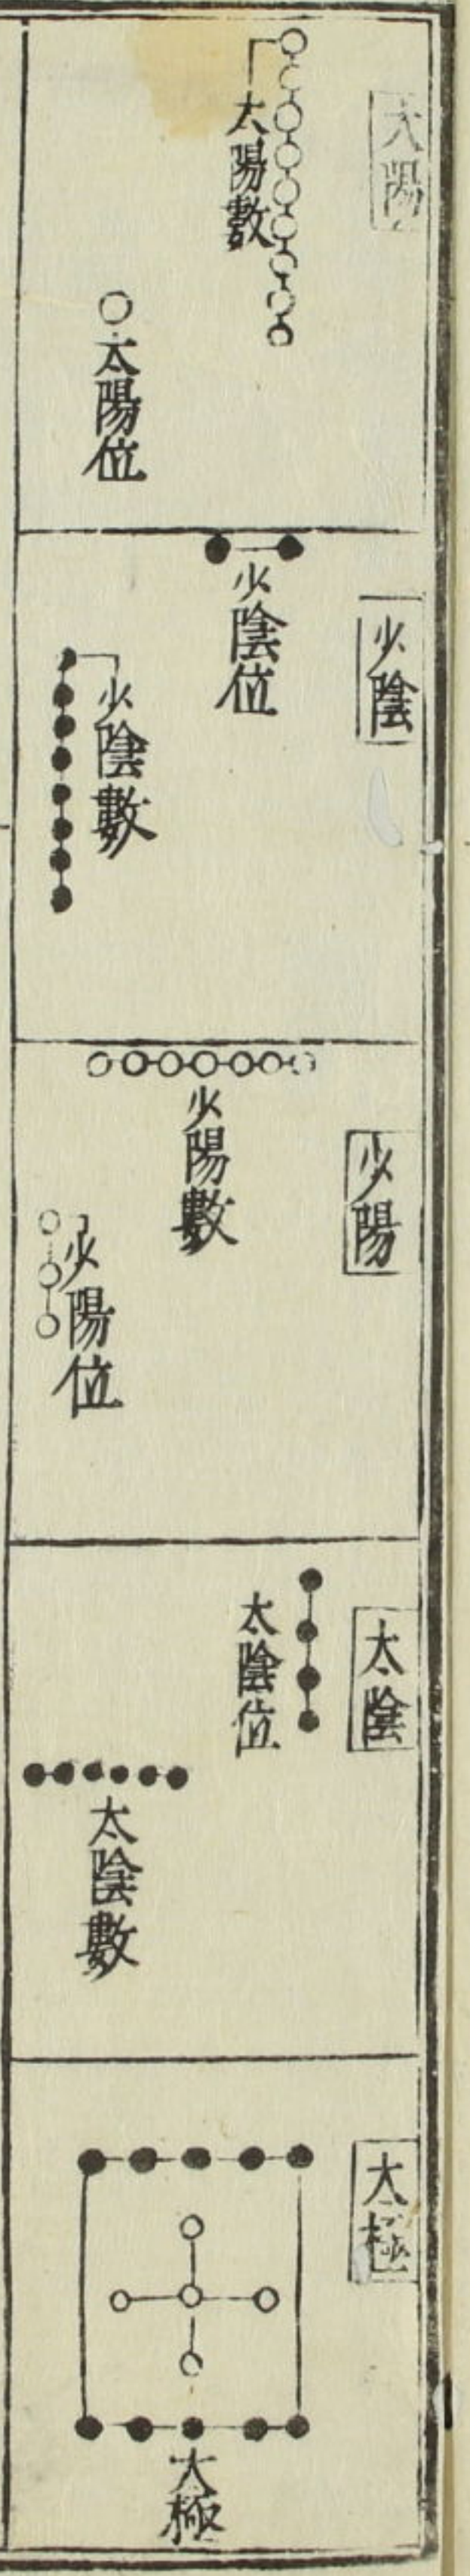 太陽
太陽數
太陽位
少陰
少陰位
少陰數
少陽
少陽數
少陽位
太陰
太陰位
太陰數
太極
太極